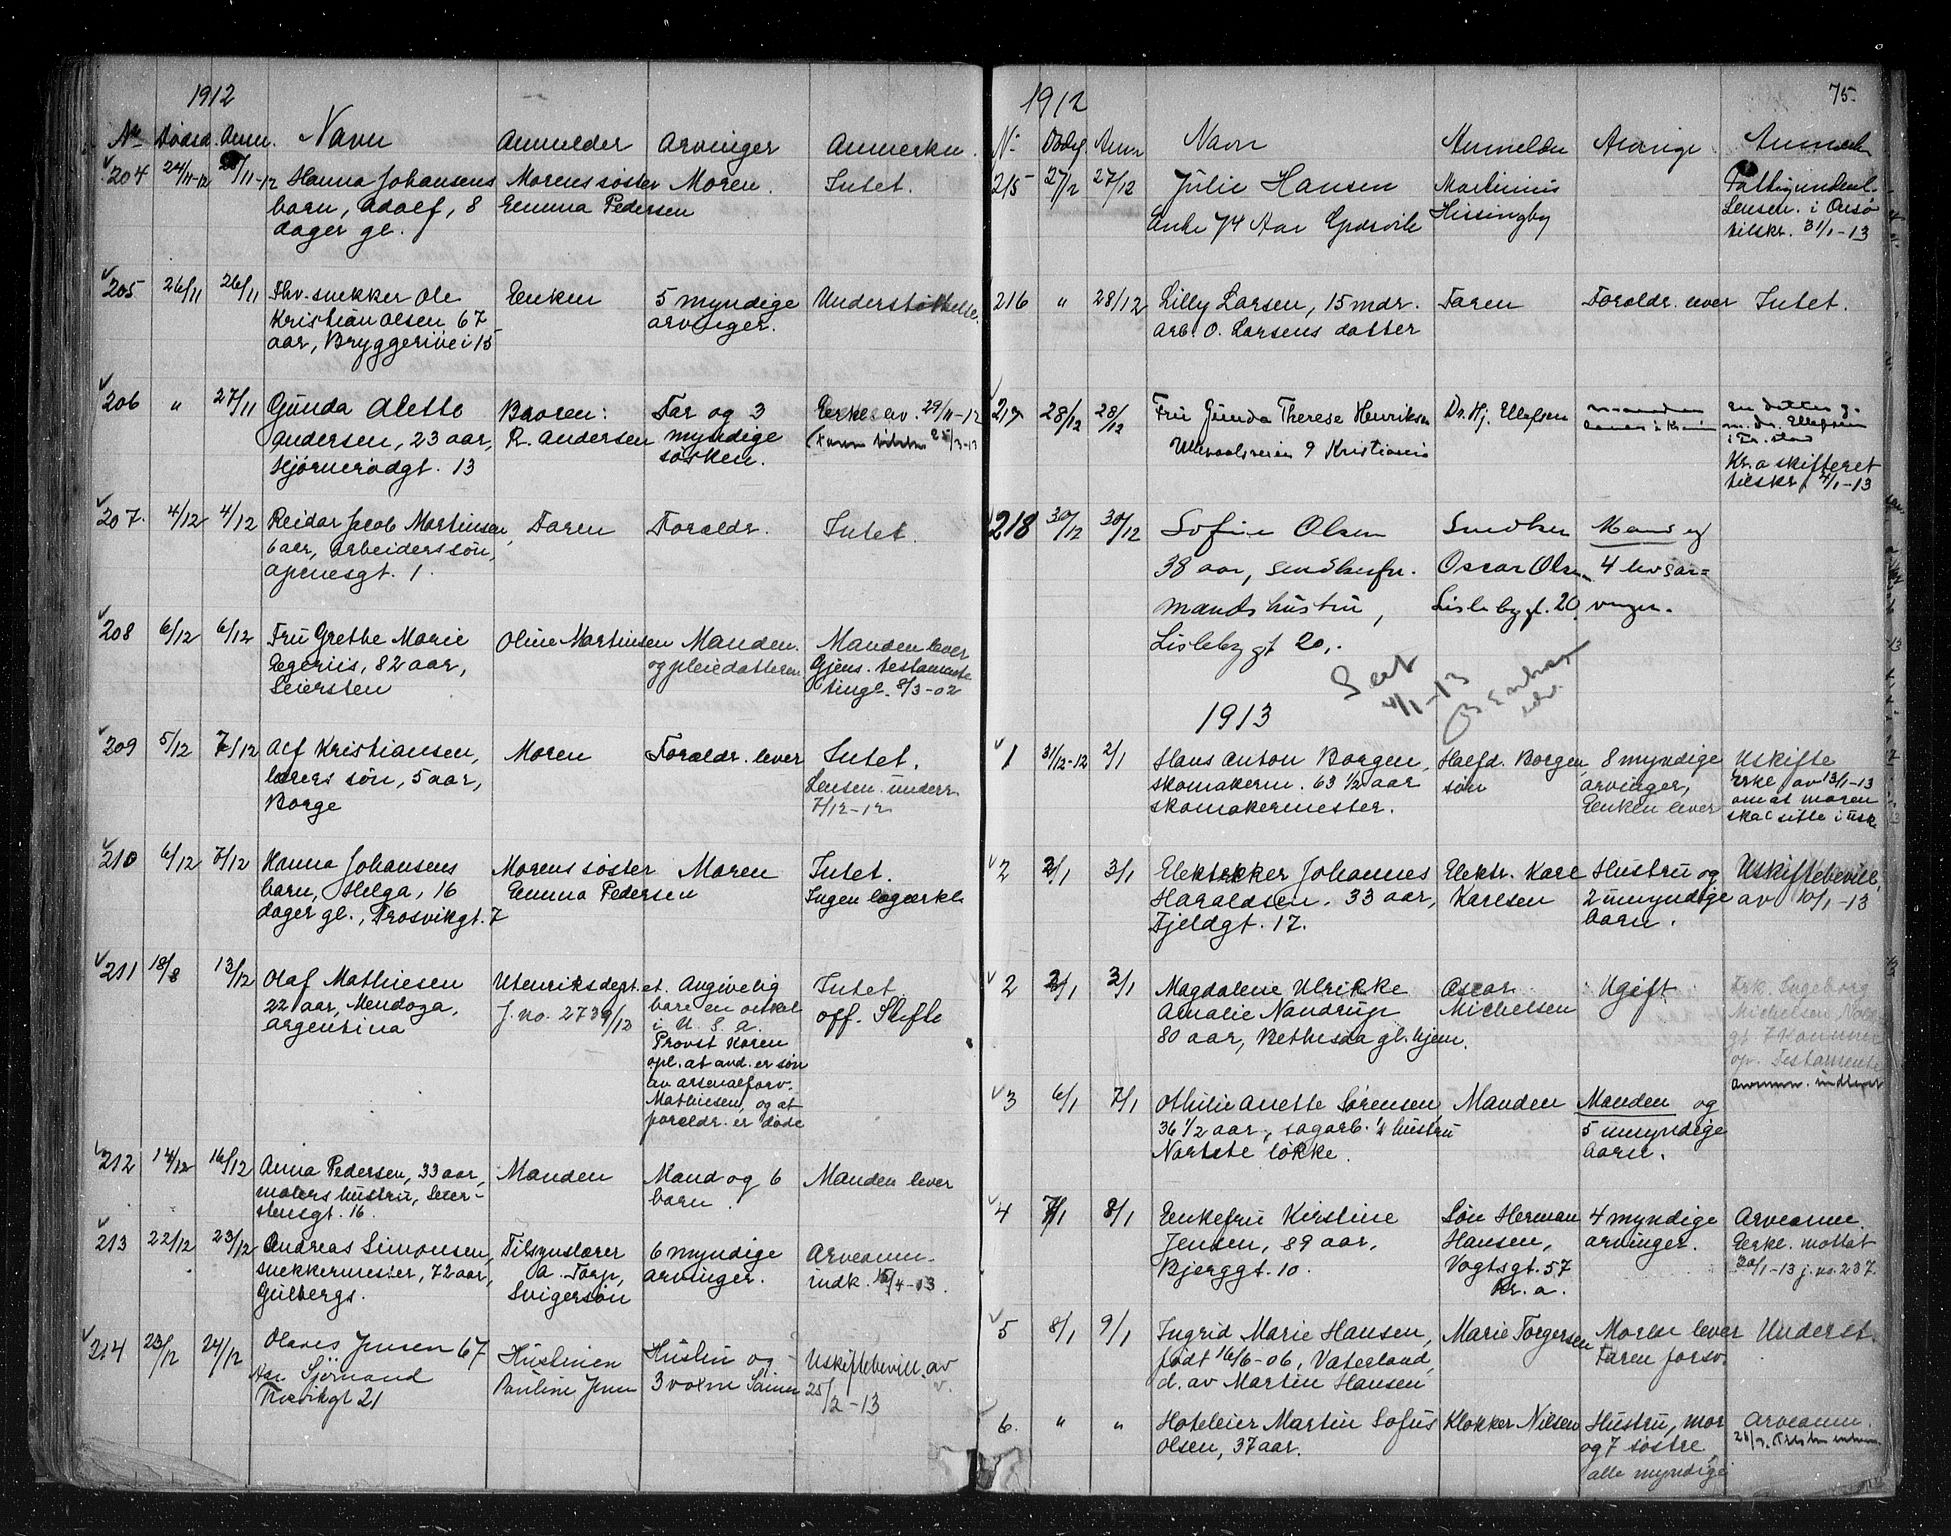 1912
No Dødsd. Anm. Navn Anmelder Arvinger Anmerkn.
204 24/11-12 28/11-12 Hanna Johansens Morens søster Moren. Intet.
barn, Adolf, 8 Emma Pedersen
dager gl.
205 26/11 26/11 Fhv. snekker Ole Enken 5 myndige Understøttelse.
Kristian Olsen 67 arvinger.
aar, Bryggerivei 15
206 " 27/11 Gunda Alette Broren: Far og 3 Erkl. av 29/11-12
Andersen, 23 aar, R. Andersen myndige
Hjørnerødgt. 13 søsken.
207. 4/12 4/12 Reidar Jacob Martinsen, Faren Forældr. Intet.
6 aar, arbeiders søn,
Apenesgt. 1.
208 6/12 6/12 Fru Grethe Marie Oline Martinsen Manden Manden lever
Segeriis, 82 aar, og pleiedatteren Gjens. testamente
Seiersten tingl. 8/3-02
209 5/12 7/12 Alf Kristiansen, Moren Forældr. lever Intet.
lærers søn, 5 aar, Lensm. underr.
Borge 7/12-12
210 6/12 7/12 Hanna Johansens Morens søster Moren Intet.
barn, Helga, 16 Emma Pedersen Ingen lægeerkl.
dager gl., Trosvikgt. 7
211 18/8 13/12 Olaf Mathiesen Utenriksdept. et. Angivelig Intet
22 aar, Mendoza, J. no. 2739/12 bare en onkel off. Skifte
Argentina i U.S.A.
Provst Koren
opl. at avd. er søn
av arsenalforv.
Mathiesen, og at
foreldr. er døde
212 14/12 16/12 Anna Pedersen, 33 aar, Manden Mand og 6 Manden lever
malers hustru, Seier- barn.
stensgt. 16.
213 22/12 23/12 Andreas Simonsen, Tilsynslærer 6 myndige Arveanm.
snekkermester, 72 aar, A. Torp, arvinger. indk. 15/4-13.
Gulbergs. Svigersøn
214 23/12 24/12 Olaves Jensen 67 Hustruen Hustru og Uskiftebevill. av
Aar Sjømand Pauline Jensen 3 voxne 25/2-13
Trosvikgt 21
1912 75.
No Dødsd. Anm Navn Anmelder Arvinge Anmerk
215 27/12 27/12 Julie Hansen Martinius Fattigunderst.
Enke 74 Aar Gudsvik Kissingby Lensm. i Onsø
tilskr. 31/1-13
216 " 28/12 Lilly Larsen, 15 mdr. Faren Foreldr. lever Intet.
arb. O. Larsens datter
217 28/12 28/12 Fru Gunda Therese Henriksen Dr. Hj. Ellefsen manden En datter g.
Ullevoalsveien 9 Kristiania m. dr. Ellefsen
i Fr.stad
Kr.a skifteret
tilskr. 2/1-13
218 30/12 30/12 Sofie Olsen Snedker Mand og
38 aar, snedker Oscar Olsen 4 livsar=
mands hustru, Lislebygt. 20 vinger.
Lislebygt 20,.
4/1-13
1913
1 31/12-12 2/1 Hans Anton Borgen, Halfd. Borgen, 8 myndige Uskifte
skomakerm. 63 1/2 aar søn arvinger, Erkl. av 13/1-13
skomakermester. Enken lever om at moren
skal sitte i usk.
2 2/1 3/1 Elektrikker Johannes Elektr. Karl Hustru og Uskiftebevill.
Haraldsen. 33 aar, Karlsen 2 umyndige av 10/1-13
Fjeldgt. 17. barn.
2 2/1 3/1 Magdalene Ulrikke Oscar Ugift Frk. Ingeborg
Amalie Nandrup Michelsen Michelsen,
80 aar, Bethesda gl. hjem. gt 7
op. Testamente
3 6/1 7/1 Othilie Anette Sørensen, Manden Manden og
36 1/2 aar, sagarb.'s hustru 5 umyndige
Nørtete løkke. barn.
4 7/1 8/1 Enkefru Kirstine Søn Herman 4 myndige Arveanm.
Jensen, 89 aar, Hansen, arvinger. Erkl. mottat
Bjerggt. 10. Vogtsgt. 57 30/1-13 j. no. 237.
Kr.a.
5 8/1 9/1 Ingrid Marie Hansen, Marie Torgersen Moren lever Underst.
født 16/6-06, Vaterland, Faren forsv.
d. av Martin Hansen
6. " " Hoteleier Martin Sofus Klokker Nilsen Hustru, mor Arveanm.
Olsen, 37 aar. og 7 søstre,
alle myndige